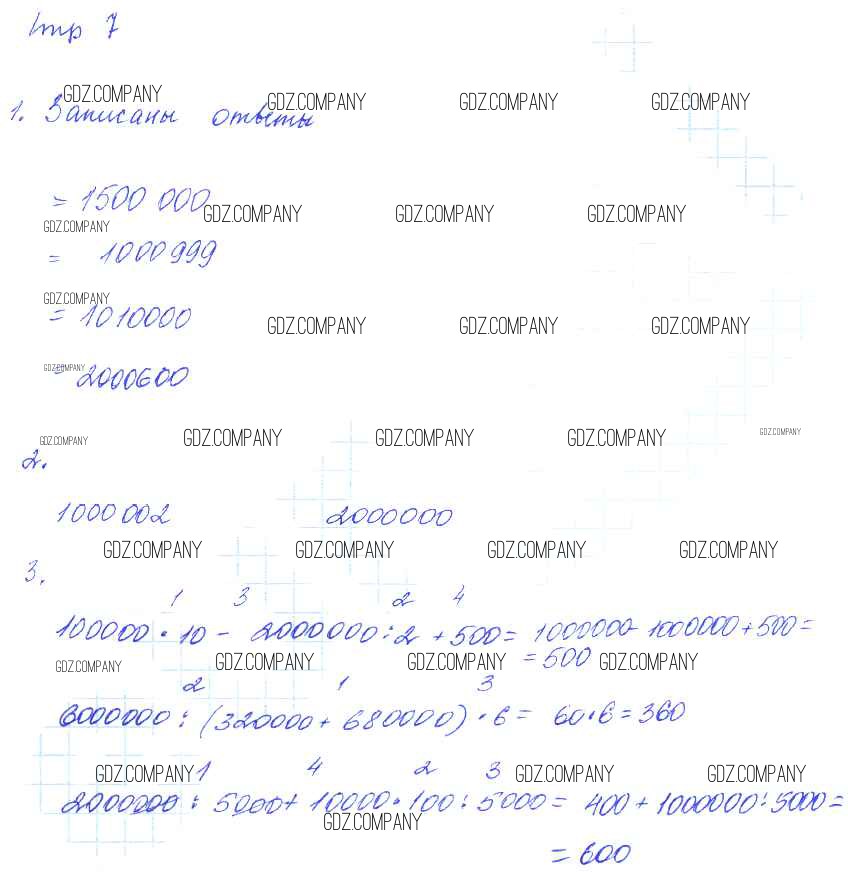 Стр 7
GDZ.COMPANY GDZ.COMPANY GDZ.COMPANY GDZ.COMPANY
1. Записаны ответы
= 1500 000
GDZ.COMPANY GDZ.COMPANY GDZ.COMPANY
GDZ.COMPANY
= 1000999
GDZ.COMPANY
= 1010000
GDZ.COMPANY GDZ.COMPANY GDZ.COMPANY
GDZ.COMPANY
= 2000600
GDZ.COMPANY GDZ.COMPANY GDZ.COMPANY GDZ.COMPANY GDZ.COMPANY
2.
1000 002 2000000
GDZ.COMPANY GDZ.COMPANY GDZ.COMPANY GDZ.COMPANY
3.
1 3 2 4
100000 · 10 - 2000000 : 2 + 500 = 1000000 - 1000000 + 500 =
GDZ.COMPANY GDZ.COMPANY GDZ.COMPANY = 500 GDZ.COMPANY
2 1 3
6000000 : (320000 + 680000) · 6 = 60 · 6 = 360
GDZ.COMPANY 1 4 2 3 GDZ.COMPANY GDZ.COMPANY
2000000 : 5000 + 10000 · 100 : 5000 = 400 + 1000000 : 5000 =
GDZ.COMPANY
= 600